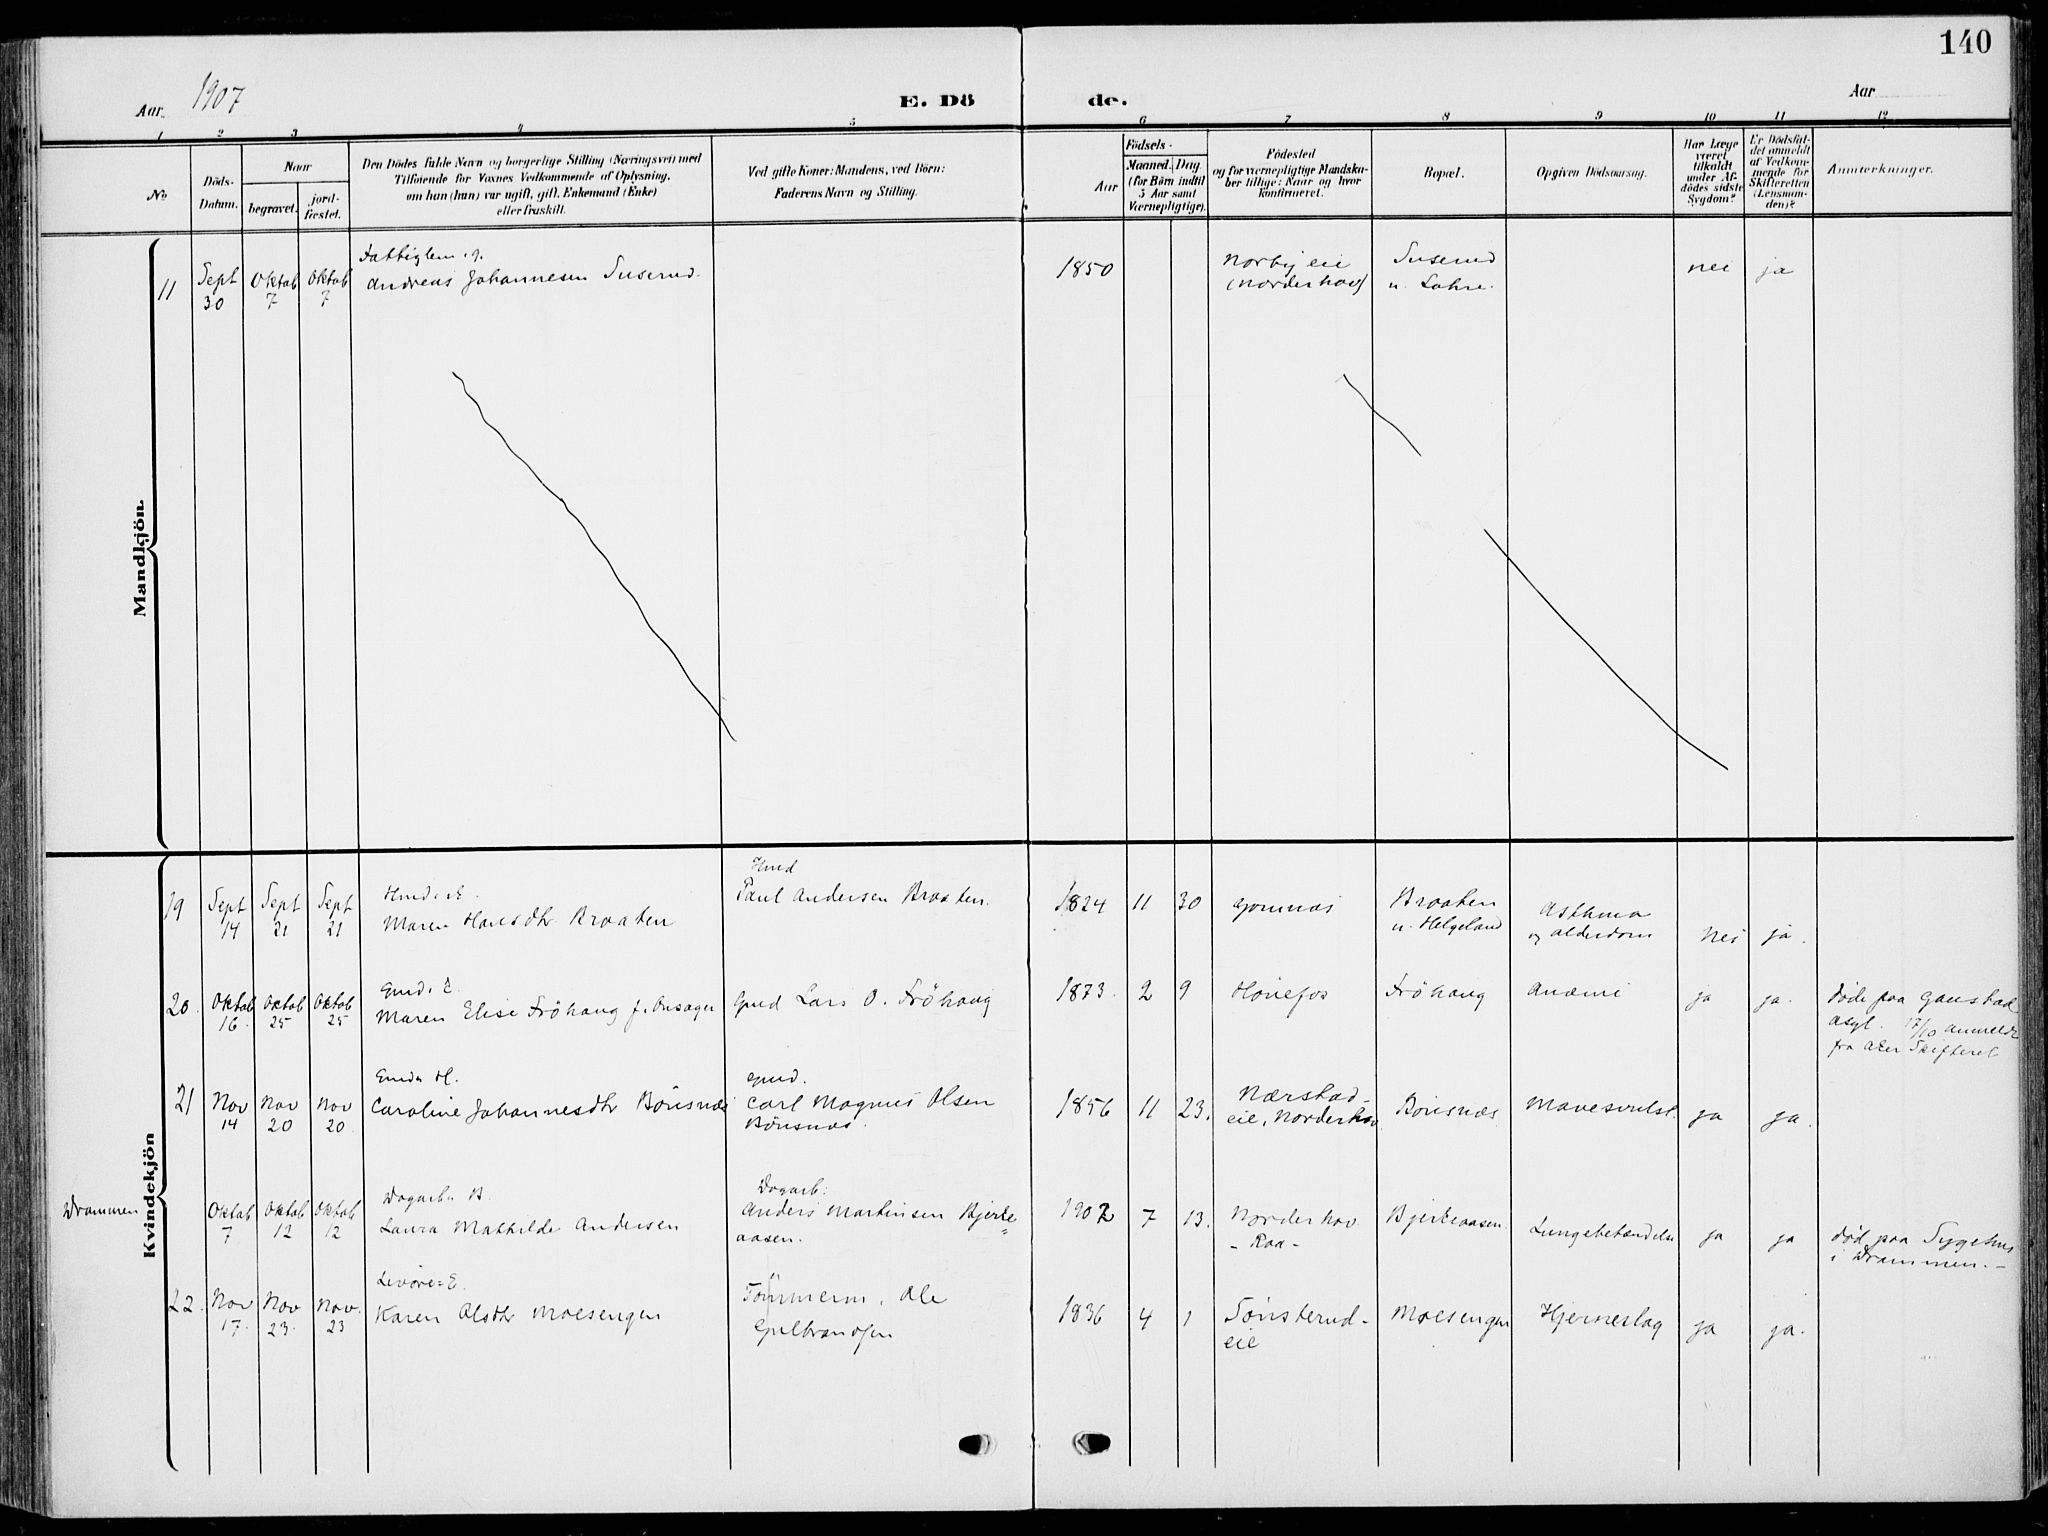 140
Aar 1907
E. Dö de.
Aar
1 2 3 4 5 6 7 8 9 10 11 12
No
Döds-
Datum.
Naar
begravet.
jord-
fæstet.
Den Dödes fulde Navn og borgerlige Stilling (Næringsvei) med
Tilföiende for Voxnes Vedkommende af Oplysning,
om han (hun) var ugift, gift, Enkemand (Enke)
eller fraskilt.
Ved gifte Koner: Mandens, ved Börn:
Faderens Navn og Stilling.
Födsels-
Aar
Maaned. Dag
(for Börn indtil
5 Aar samt
Værnepligtige).
Födested
og for værnepligtige Mandska-
ber tillige: Naar og hvor
konfirmeret.
Bopæl.
Opgiven Dödsaarsag.
Har Læge
været
tilkaldt
under Af-
dödes sidste
Sygdom?
Er Dödsfal-
det anmeldt
af Vedkom-
mende för
Skifteretten
(Lensman-
den)?
Anmærkninger.
Mandkjön.
11 Sept 30 Oktob 7 Oktob 7
Fattiglem. g.
Andreas Johannesen Suserud
1850
Norby eie
(Norderhov)
Suserud
u. Lohre.
nei ja
Kvindekjön
19 Sept 14 Sept 21 Sept 21
Maren Hansdtr Braaten
Hmd
Paul Andersen Braaten.
1824 11 30
Gomnæs
Braaten
u. Helgeland
Asthma
og Alderdom
Nei ja.
20. Oktob 16. Oktob 25 Oktob 25
Maren Elise Fröhaug f. Onsager
Gmd Lars O. Fröhaug
1873. 2 9
Hönefos
Fröhaug
Anæmi
ja ja.
Döde paa Gaustad
asyl. 17/10 anmeldt
fra Aker Skifteret
21 Nov 14 Nov 20 Nov 20.
Caroline Johannesdtr Bönsnæs
Gmd.
Carl Magnus Olsen
Bönsnæs.
1856 11 23.
Nærstad-
eie, Norderhov
Bönsnæs
Mavesvulst
ja ja.
Drammen
Oktob 7 Oktob 12 Oktob 12
Dagarb. B.
Laura Mathilde Andersen
Dagarb:
Anders Martinsen Bjerke=
aasen.
1902 7 13.
Norderhov
- Raa -
Bjerkeaasen
Lungebetændelse
ja ja
död paa Sygehus
i Drammen. -
22. Nov 17. Nov 23. Nov. 23
Karen Olsdtr Moesengen
Tömmerm. Ole
Gulbrandsen
1836 4 1
Tönsterud-
eie
Moesengen
Hjerneslag
ja ja.